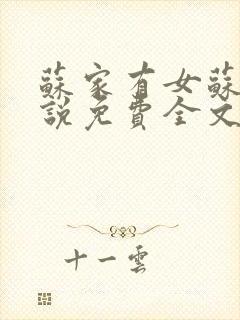 蘇家有女蘇
說免費全文
十一雲